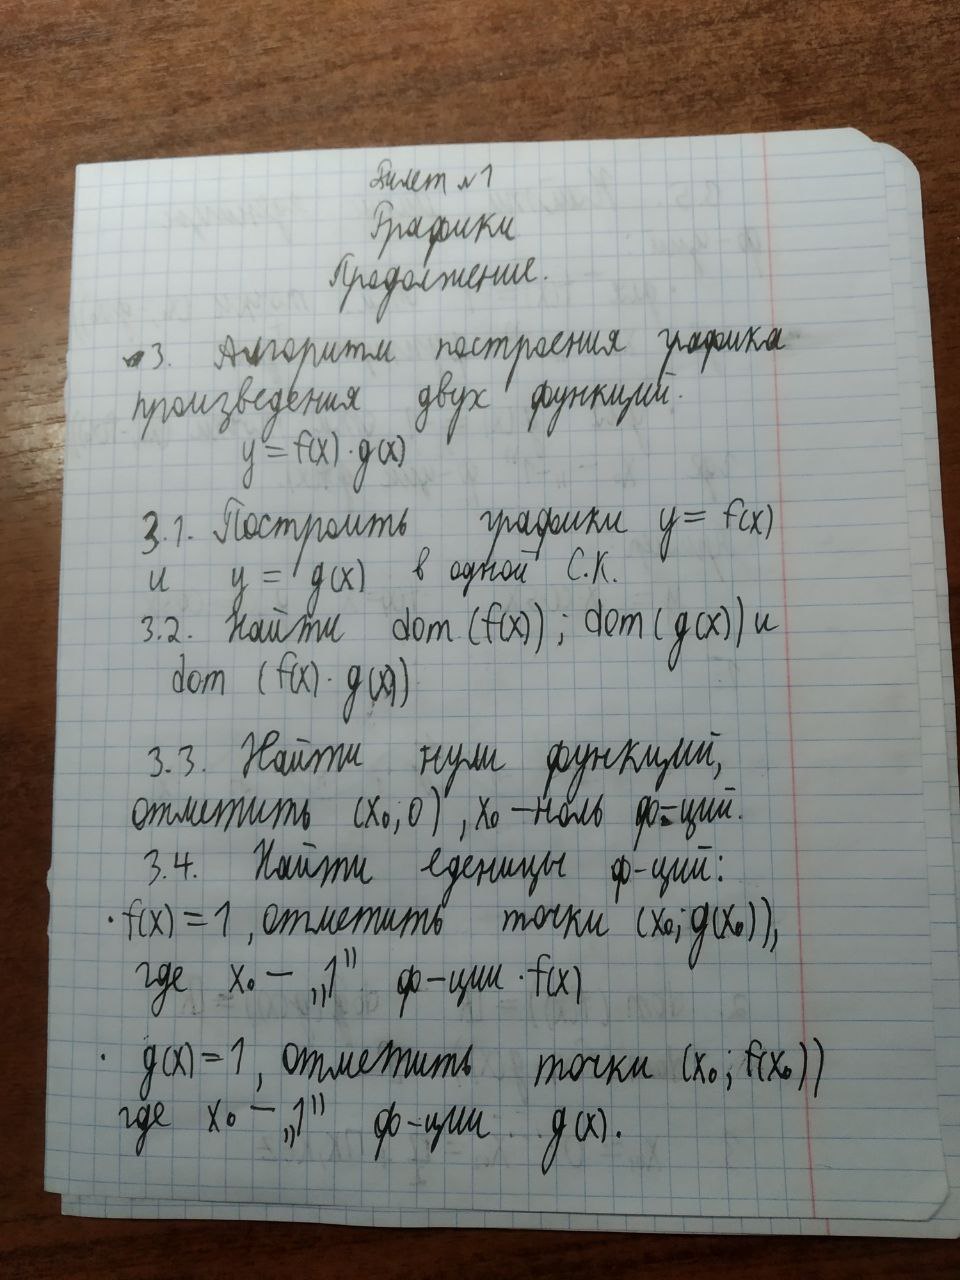 Билет №1
Графики
Продолжение.
3. Алгоритм построения графика
произведения двух функций.
y = f(x) · g(x)
3.1. Построить графики y = f(x)
и y = g(x) в одной С.К.
3.2. Найти dom (f(x)); dom (g(x)) и
dom (f(x) · g(x))
3.3. Найти нули функций,
отметить (x₀; 0), x₀ – ноль ф-ций.
3.4. Найти еденицы ф-ций:
· f(x) = 1, отметить точки (x₀; g(x₀)),
где x₀ – „1" ф-ции · f(x)
· g(x) = 1, отметить точки (x₀; f(x₀))
где x₀ – „1" ф-ции g(x).